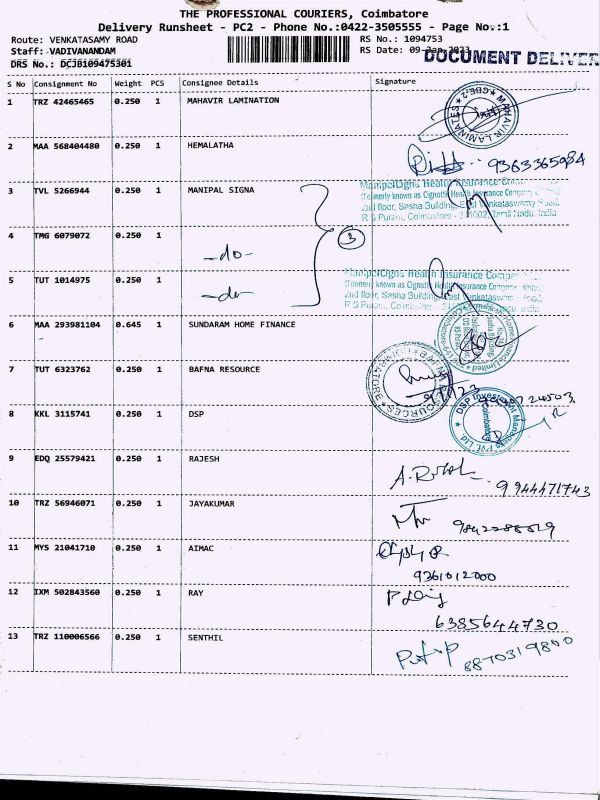 THE PROFESSIONAL COURIERS, Coimbatore
Delivery Runsheet - PC2 - Phone No.:0422-3505555 - Page No.:1
Route: VENKATASAMY ROAD RS No.: 1094753
Staff: VADIVANANDAM RS Date: 09-Jan-2023
DOCUMENT DELIVER
DRS No.: DCJB109475301
S No Consignment No Weight PCS Consignee Details Signature
1 TRZ 42465465 0.250 1 MAHAVIR LAMINATION
MAHAVIR LAMINATES CBE-2
2 MAA 568404480 0.250 1 HEMALATHA
9363365984
3 TVL 5266944 0.250 1 MANIPAL SIGNA
ManipalCigna Health Insurance
(Formerly known as Cigna
2nd floor, Sesha Building, East Venkataswamy Road,
R S Puram, Coimbatore - 641002, Tamil Nadu, India
4 TMG 6079072 0.250 1 -do- 3
5 TUT 1014975 0.250 1 -do-
ManipalCigna Health Insurance
(Formerly known as Cigna
2nd floor, Sesha Building, East Venkataswamy
R S Puram, Coimbatore
6 MAA 293981104 0.645 1 SUNDARAM HOME FINANCE
7 TUT 6323762 0.250 1 BAFNA RESOURCE
BAFNA RESOURCES COIMBATORE
8 KKL 3115741 0.250 1 DSP
DSP Investment Managers Pvt. Ltd.
Coimbatore
9 EDQ 25579421 0.250 1 RAJESH
9944471743
10 TRZ 56946071 0.250 1 JAYAKUMAR
11 MYS 21041710 0.250 1 AIMAC
9361012000
12 IXM 502843560 0.250 1 RAY
6385644730
13 TRZ 110006566 0.250 1 SENTHIL
8870319800